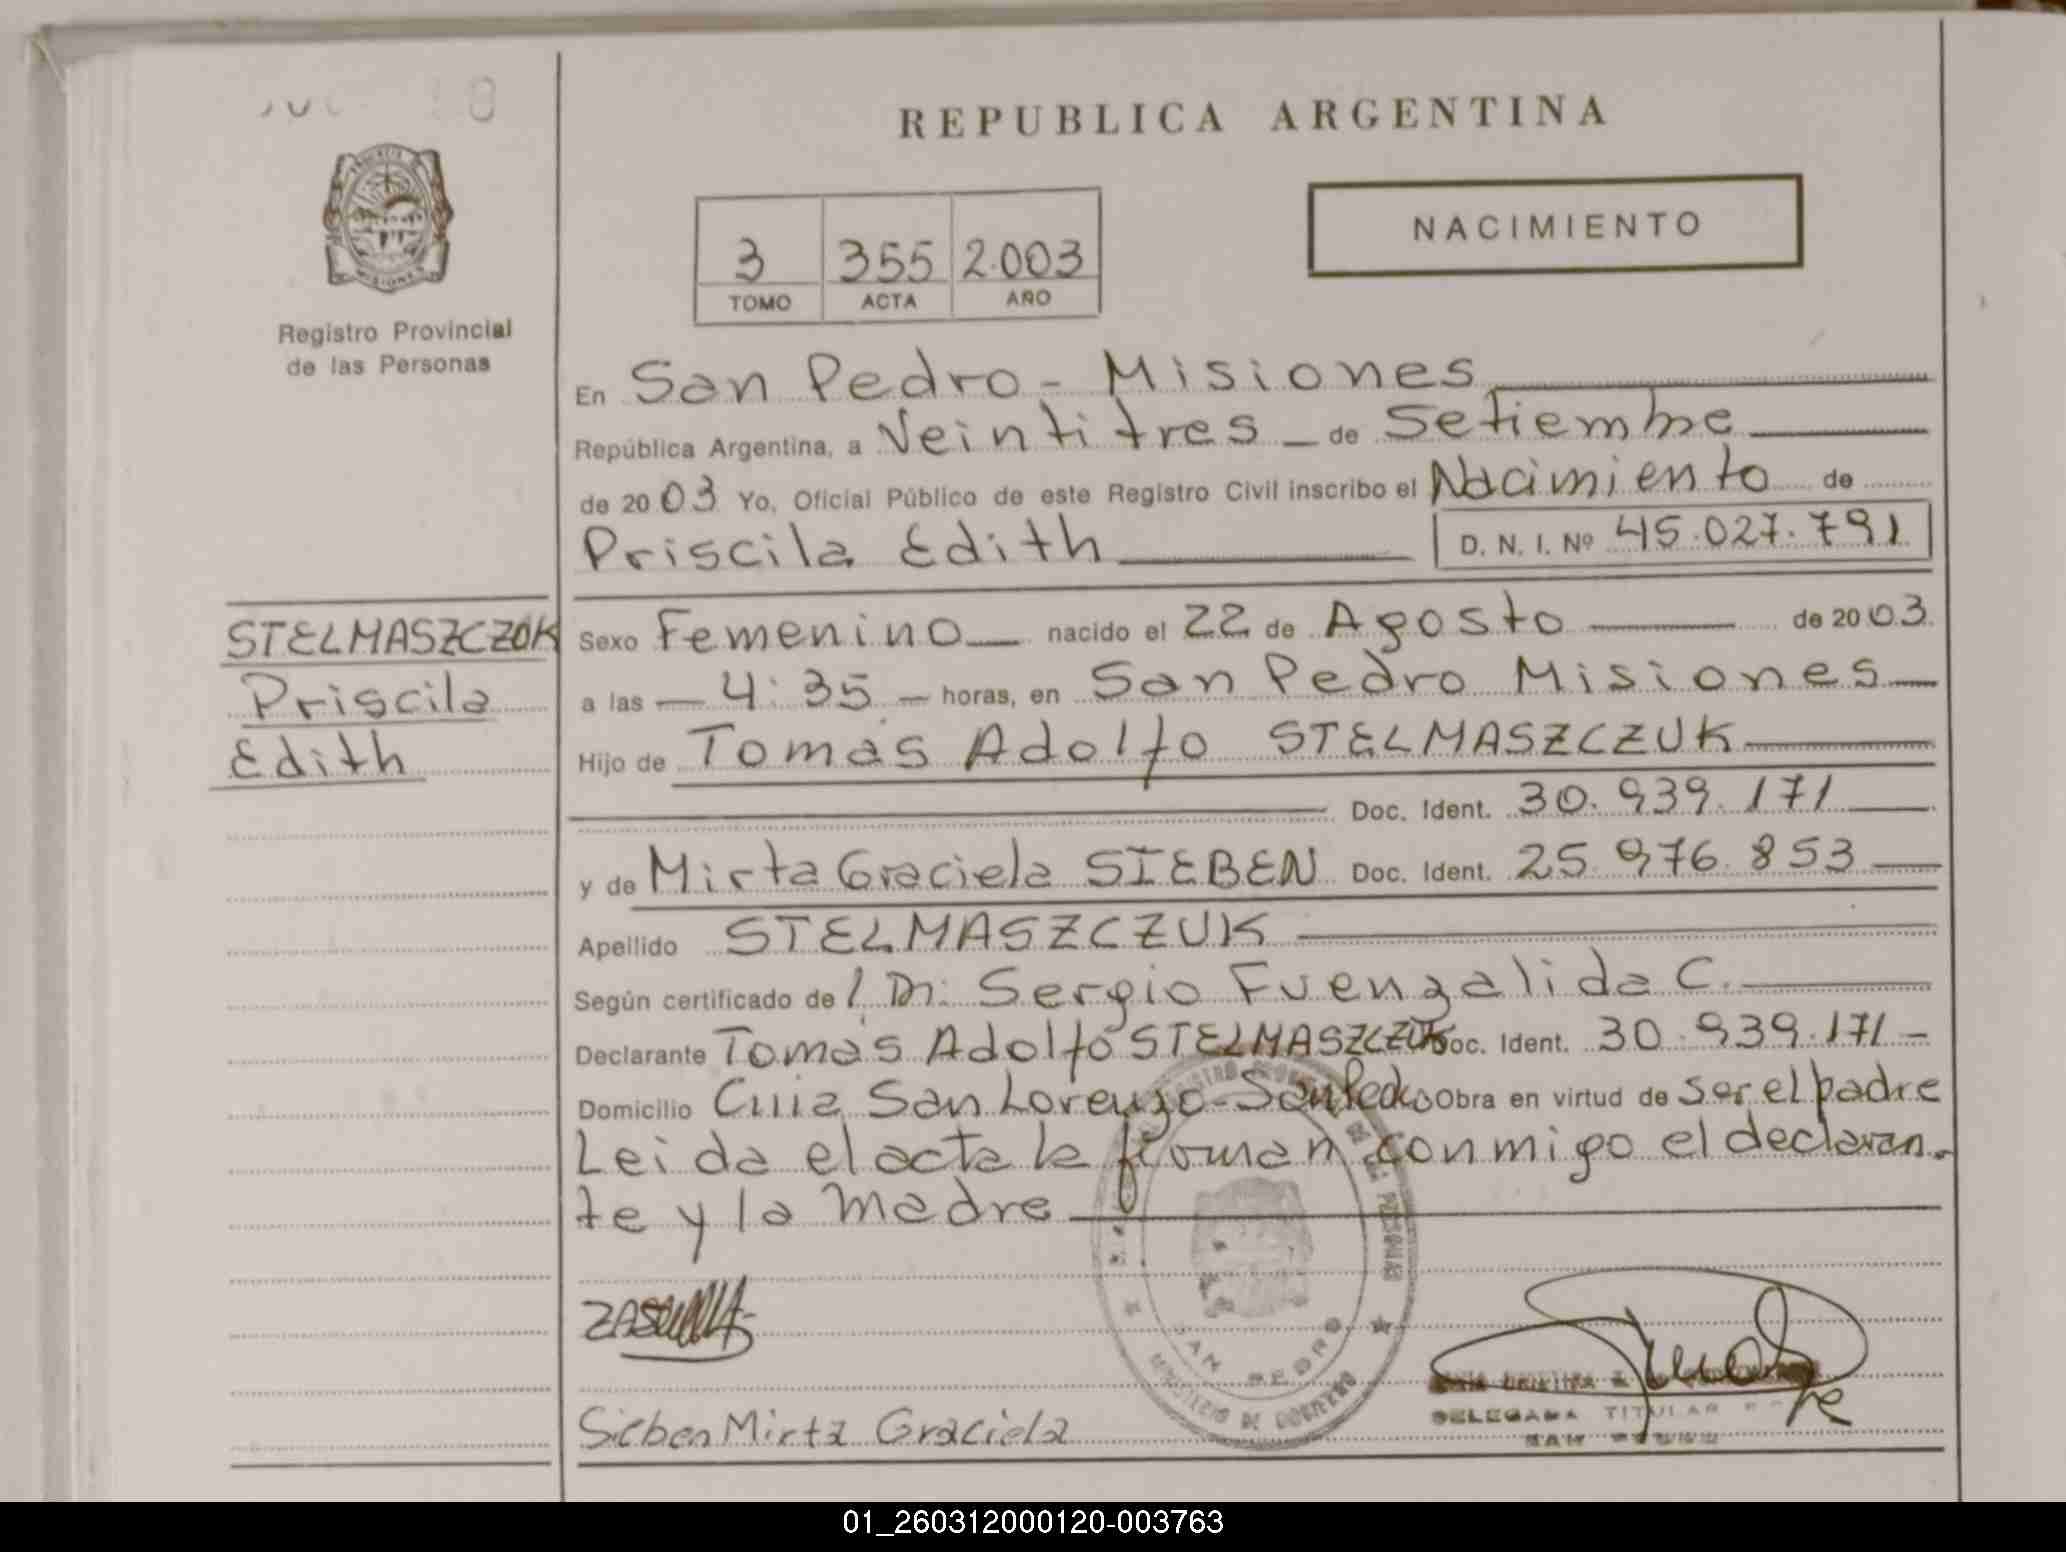 REPUBLICA ARGENTINA
NACIMIENTO
3 355 2.003
TOMO ACTA AÑO
MISIONES
Registro Provincial
de las Personas
En San Pedro - Misiones
República Argentina, a Veintitres de Setiembre
de 2003 Yo, Oficial Público de este Registro Civil inscribo el Nacimiento de
Priscila Edith D. N. I. Nº 45.027.791
STELMASZCZUK
Priscila
Edith
Sexo Femenino nacido el 22 de Agosto de 2003.
a las 4:35 horas, en San Pedro Misiones
Hijo de Tomás Adolfo STELMASZCZUK
Doc. Ident. 30.939.171
y de Mirta Graciela SIEBEN Doc. Ident. 25.976.853
Apellido STELMASZCZUK
Según certificado de Dr. Sergio Fuenzalida C.
Declarante Tomás Adolfo STELMASZCZUK Doc. Ident. 30.939.171
Domicilio Cnia San Lorenzo - San Pedro Obra en virtud de ser el padre
Leida el acta la firman conmigo el declaran-
te y la madre
REGISTRO PROVINCIAL DE LAS PERSONAS
SAN PEDRO
MINISTERIO DE GOBIERNO
Sieben Mirta Graciela
DELEGADA TITULAR
SAN PEDRO
01_260312000120-003763